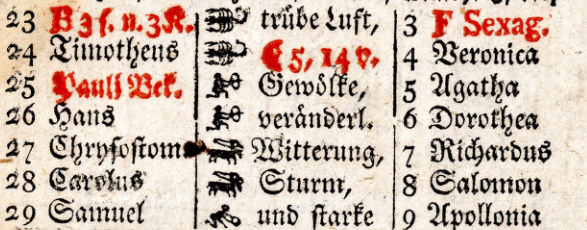 23 B 3 s. n. 3 K. trübe Luft, 3 F Sexag.
24 Timotheus C 5, 14 v. 4 Veronica
25 Pauli Bek. Gewölke, 5 Agatha
26 Hans veränderl. 6 Dorothea
27 Chrysostom Witterung, 7 Richardus
28 Carolus Sturm, 8 Salomon
29 Samuel und starke 9 Apollonia